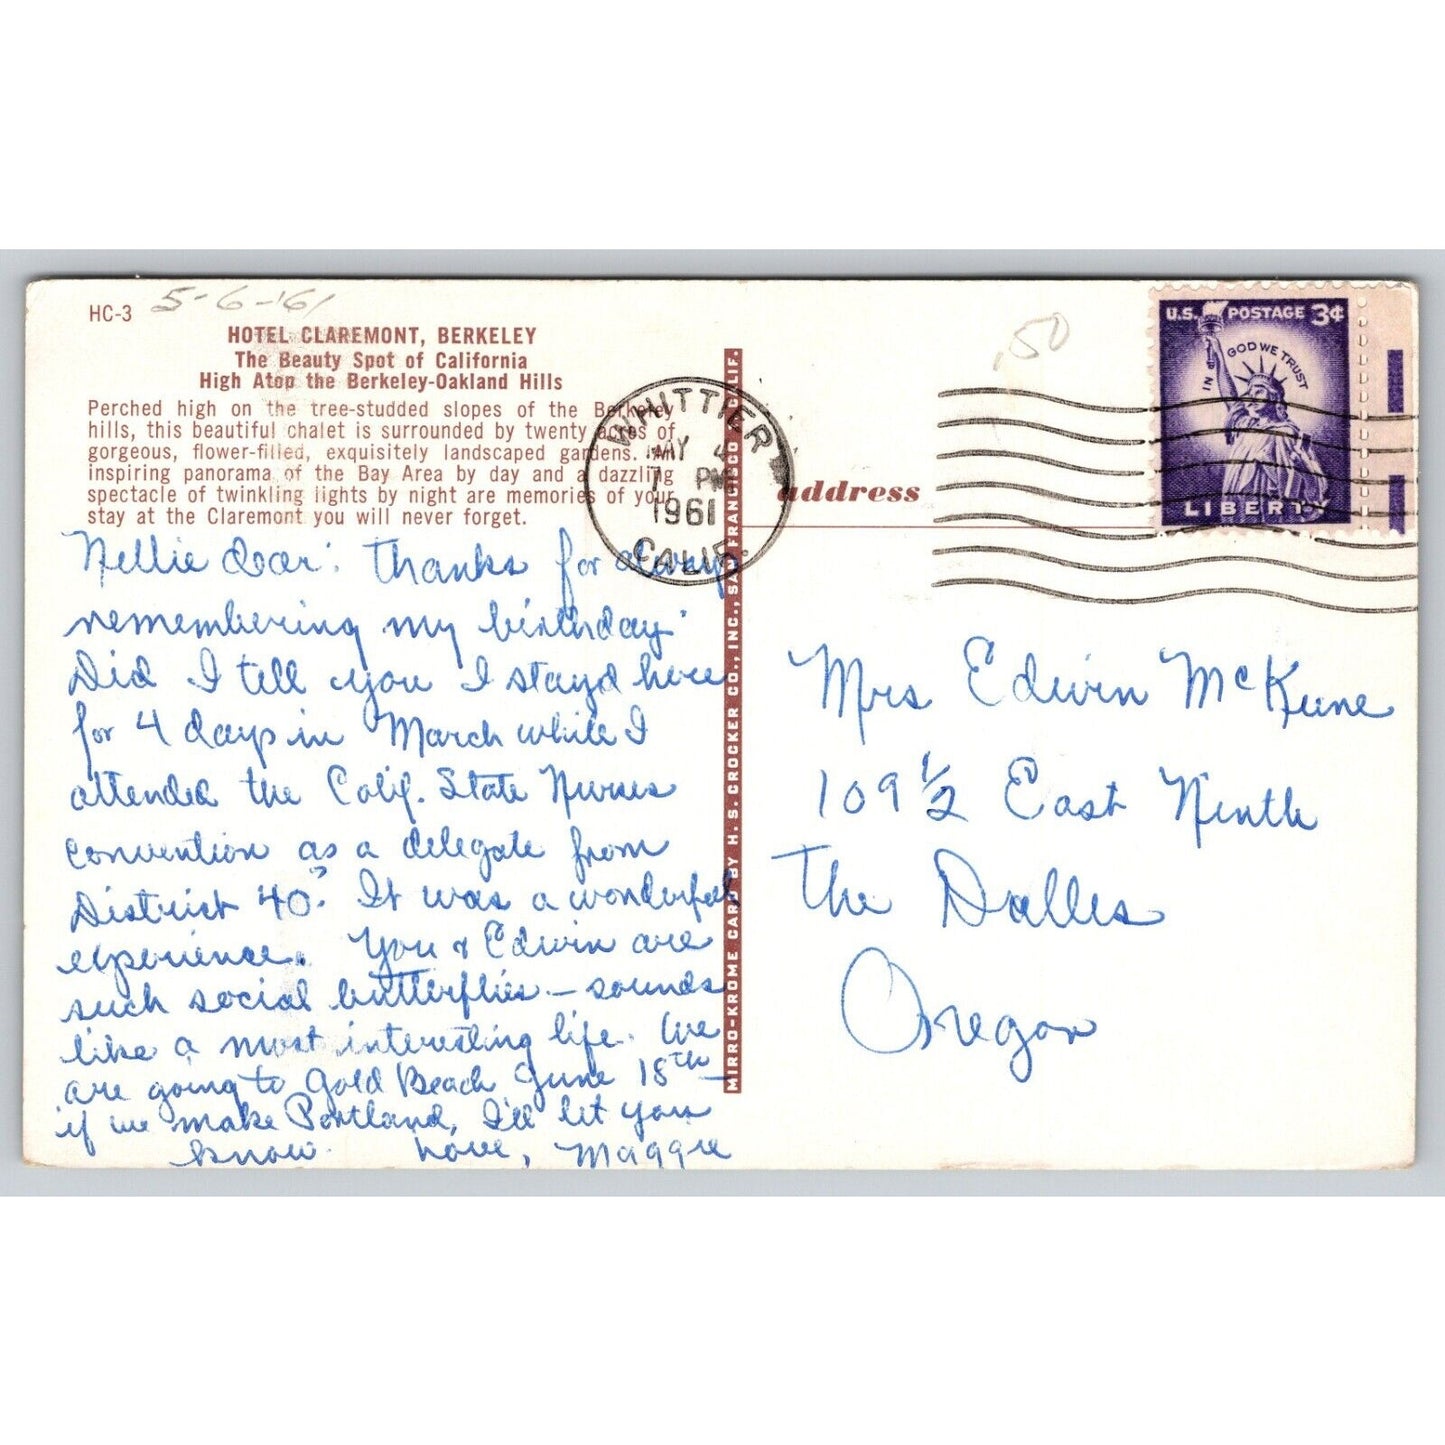 HC-3 5-6-'61
HOTEL CLAREMONT, BERKELEY
The Beauty Spot of California
High Atop the Berkeley-Oakland Hills
Perched high on the tree-studded slopes of the Berkeley
hills, this beautiful chalet is surrounded by twenty acres of
gorgeous, flower-filled, exquisitely landscaped gardens. An
inspiring panorama of the Bay Area by day and a dazzling
spectacle of twinkling lights by night are memories of your
stay at the Claremont you will never forget.
Nellie dear: Thanks for always
remembering my birthday.
Did I tell you I stayd here
for 4 days in March while I
attended the Calif. State Nurses
convention as a delegate from
District 40? It was a wonderful
experience. You & Edwin are
such social butterflies — sounds
like a most interesting life. We
are going to Gold Beach June 18th —
if we make Portland, I'll let you
know. Love, Maggie
MIRRO-KROME CARD BY H. S. CROCKER CO., INC., SAN FRANCISCO, CALIF.
WHITTIER
MAY 4
7 PM
1961
CALIF.
.50
U.S. POSTAGE 3¢
IN GOD WE TRUST
LIBERTY
address
Mrs Edwin McKune
109 1/2 East Ninth
The Dalles
Oregon